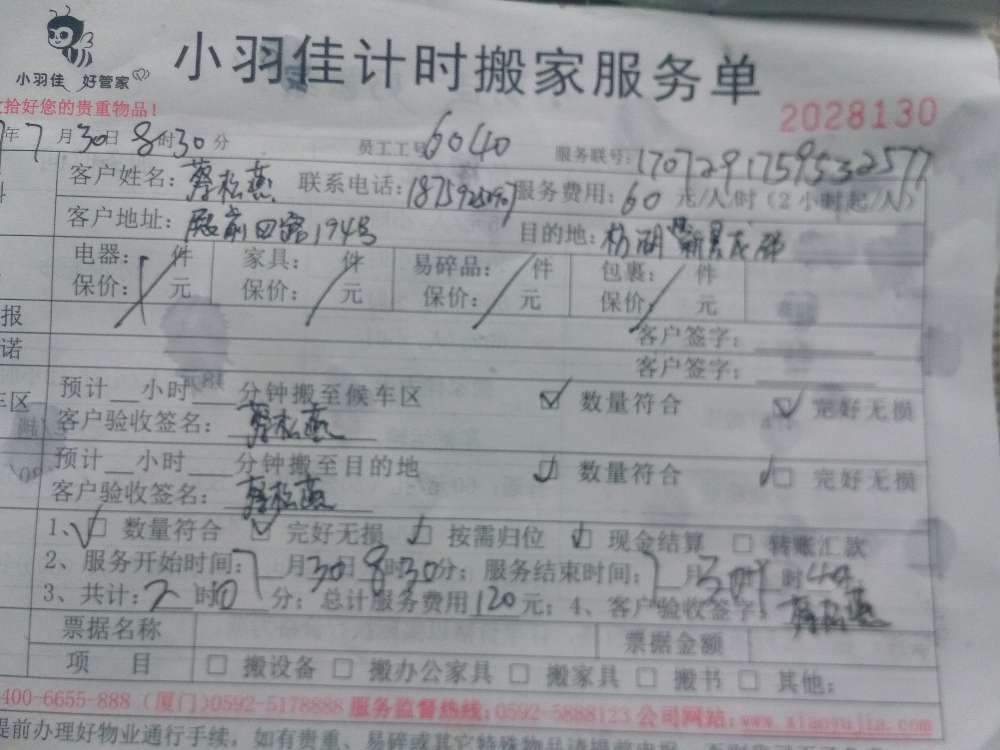 小羽佳计时搬家服务单
小羽佳 好管家
拾好您的贵重物品！
2028130
年7月30日8时30分 员工工号:6040 服务联号:1707291759532577
客户姓名:蔡松燕 联系电话: 服务费用:60元/人/时(2小时起/人)
客户地址:殿前四路194号 目的地:枋湖
电器: 件 家具: 件 易碎品: 件 包裹: 件
保价: 元 保价: 元 保价: 元 保价: 元
报 客户签字:
诺 客户签字:
车区 预计__小时__分钟搬至候车区 ☑ 数量符合 ☑ 完好无损
客户验收签名:蔡松燕
预计__小时__分钟搬至目的地 ☑ 数量符合 ☑ 完好无损
客户验收签名:蔡松燕
1、☑ 数量符合 ☑ 完好无损 ☑ 按需归位 ☑ 现金结算 □ 转账汇款
2、服务开始时间:7月30日8时30分；服务结束时间:7月30日 时40
3、共计:2时10分；总计服务费用120元；4、客户验收签字:蔡松燕
票据名称 票据金额
项 目 □ 搬设备 □ 搬办公家具 □ 搬家具 □ 搬书 □ 其他:
400-6655-888 (厦门)0592-5178888 服务监督热线:0592-5888123 公司网站:www.xiaoyujia.com
提前办理好物业通行手续，如有贵重、易碎或其它特殊物品请提前申报